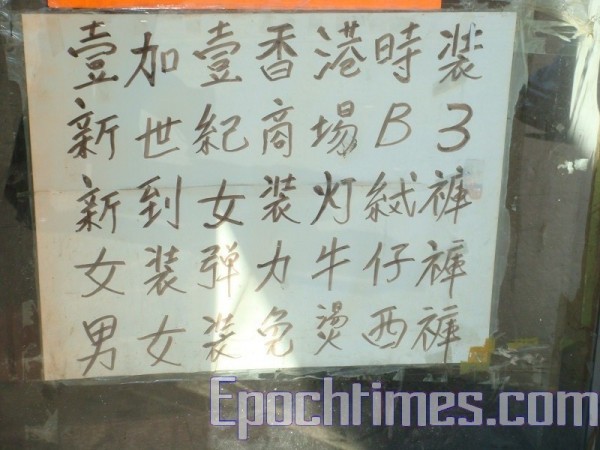 壹加壹香港時装
新世紀商場B3
新到女装灯絨褲
女装弹力牛仔褲
男女装免燙西褲
Epochtimes.com